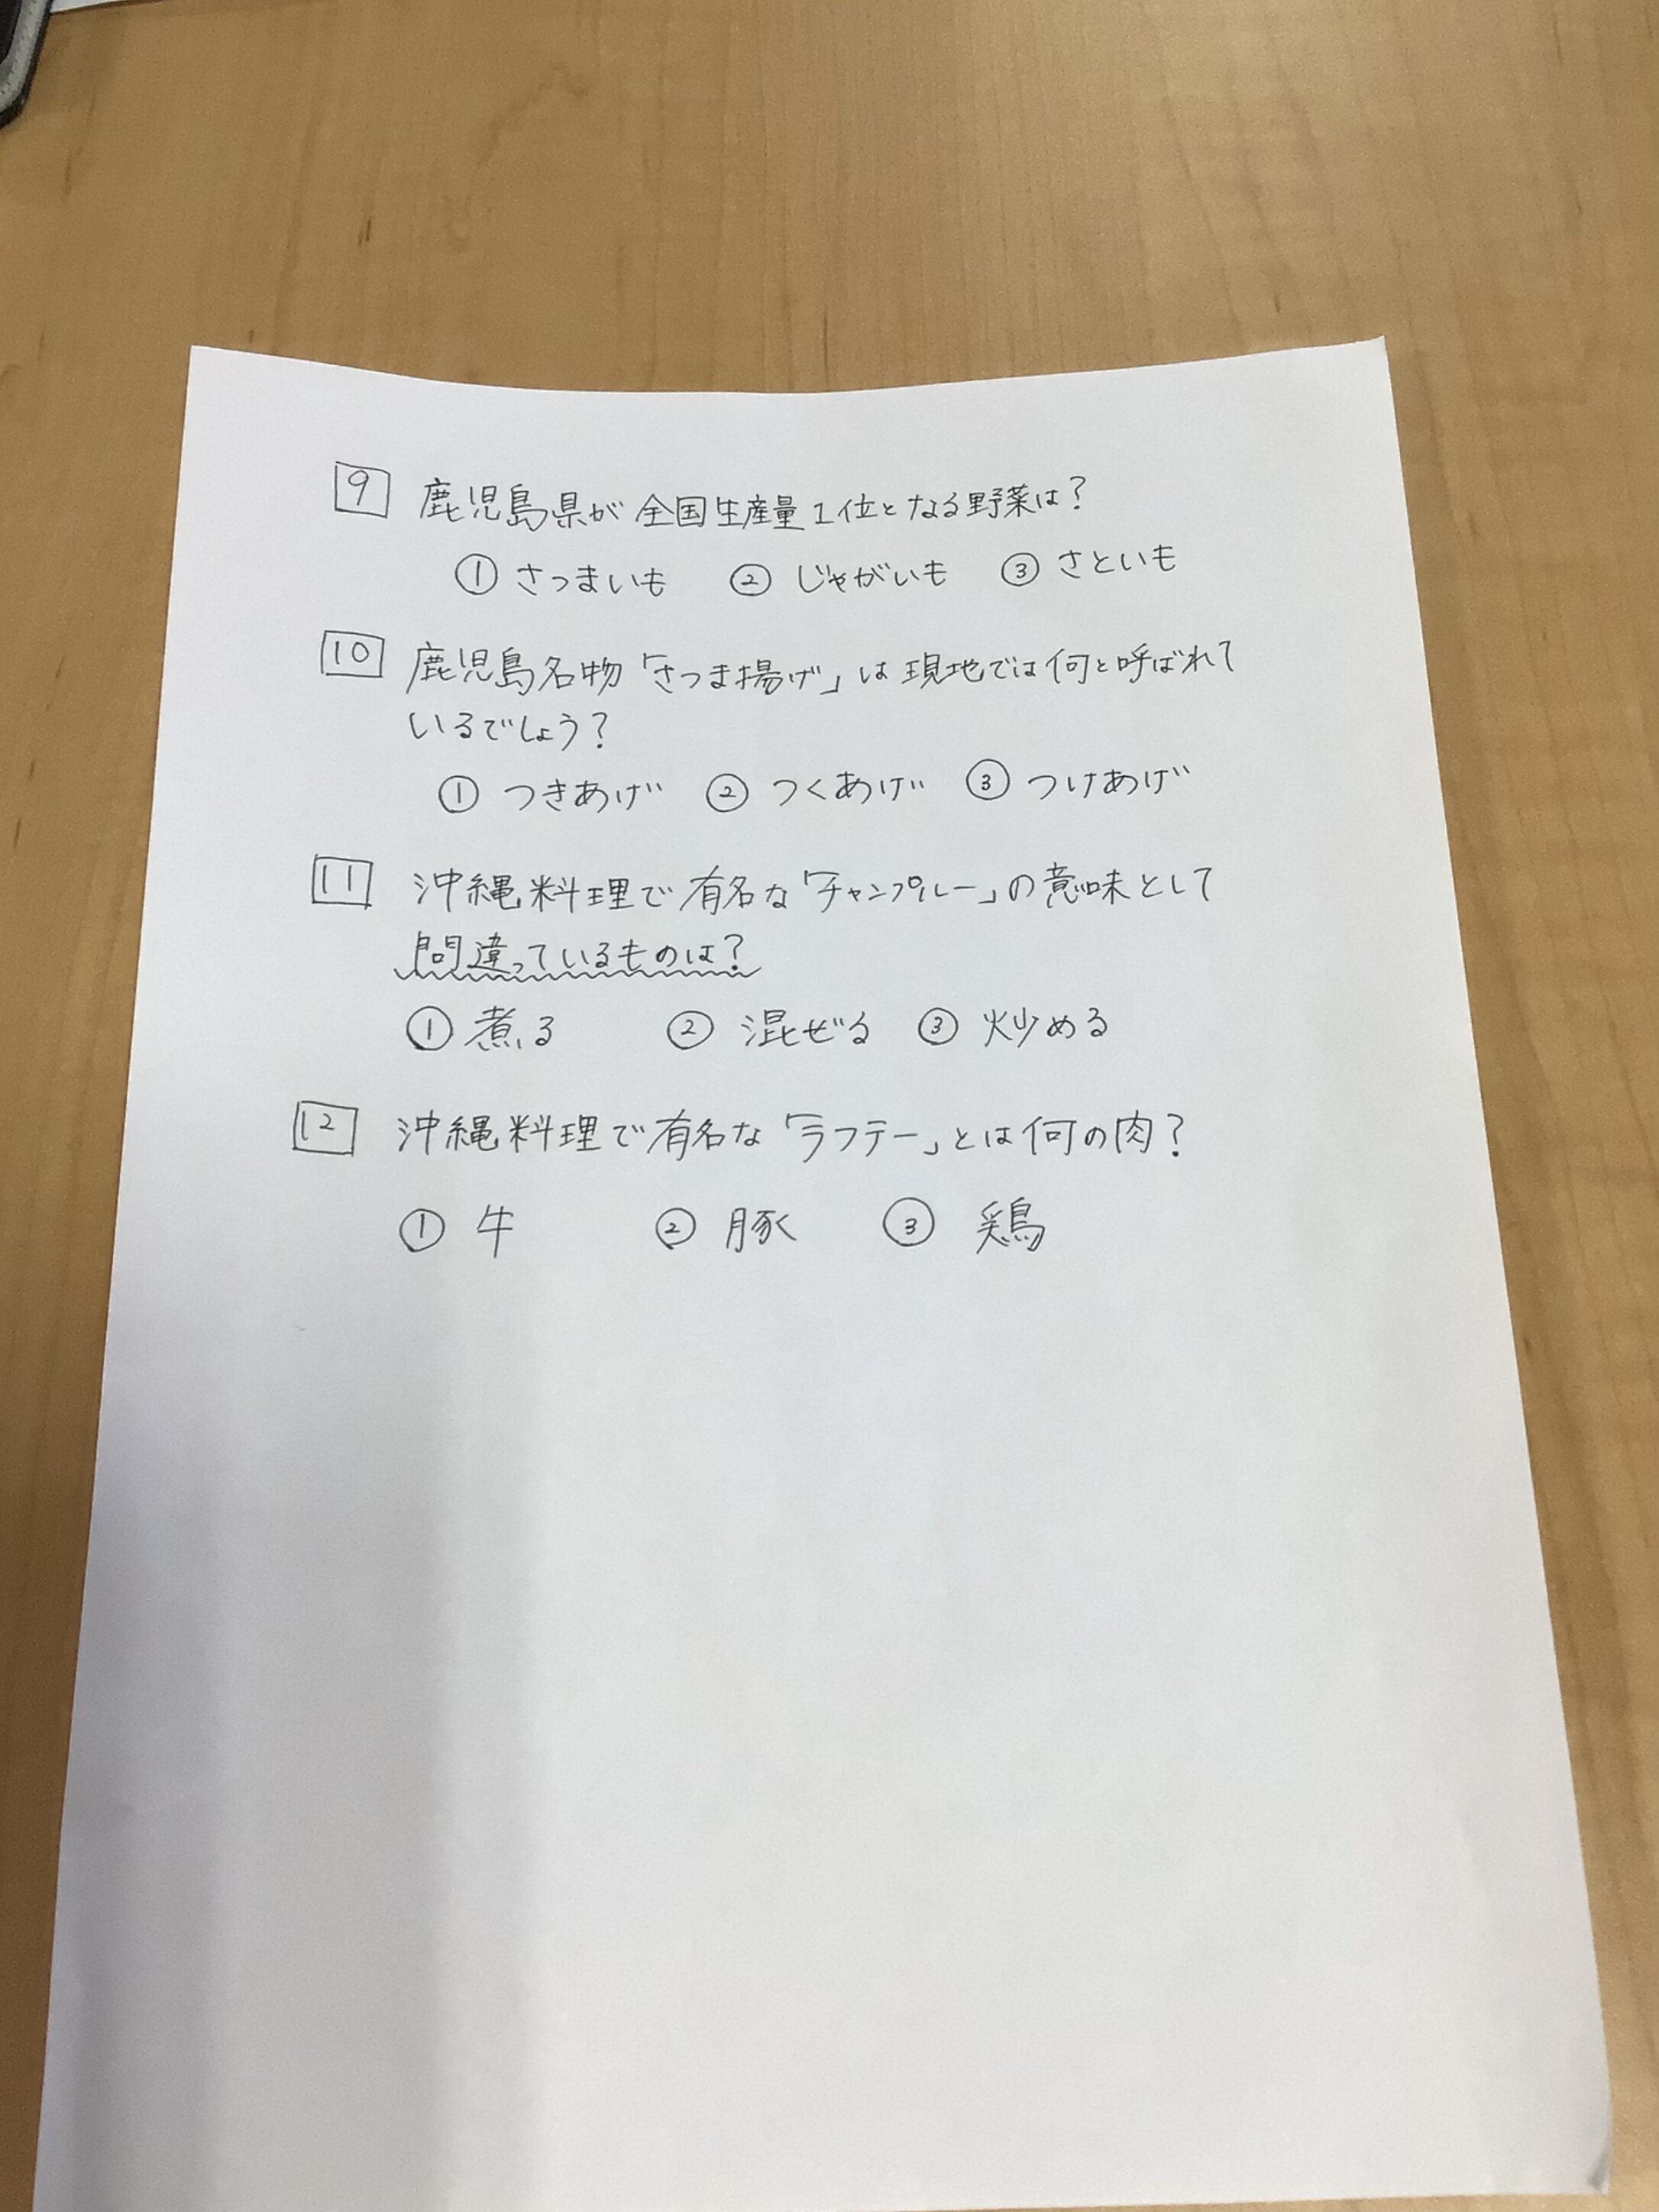 9 鹿児島県が全国生産量1位となる野菜は？
① さつまいも ② じゃがいも ③ さといも
10 鹿児島名物「さつま揚げ」は現地では何と呼ばれて
いるでしょう？
① つきあげ ② つくあげ ③ つけあげ
11 沖縄料理で有名な「チャンプルー」の意味として
間違っているものは？
① 煮る ② 混ぜる ③ 炒める
12 沖縄料理で有名な「ラフテー」とは何の肉？
① 牛 ② 豚 ③ 鶏